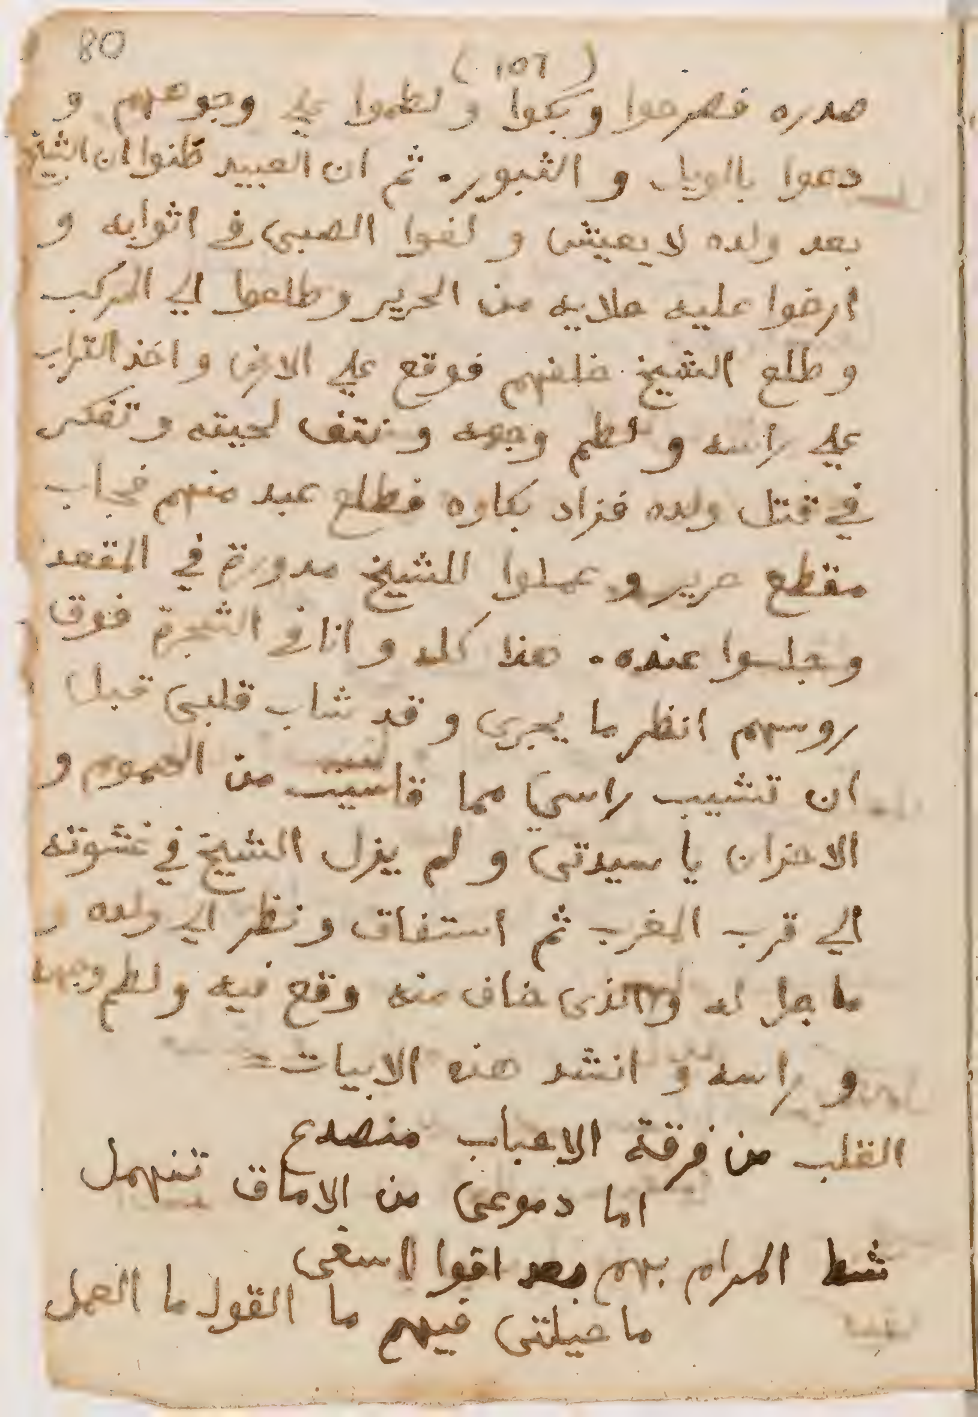 80
(١٥٦)
صدره فصرخوا وبكوا ولطموا علي وجوههم و
دعوا بالويل و الثبور. ثم ان العبيد ظنوا ان الشيخ
بعد ولده لا يعيش و لفوا الصبي في اثوابه و
ارخوا عليه ملايه من الحرير وطلعوا الي المركب
وطلع الشيخ خلفهم فوقع علي الارض واخذ التراب
علي راسه و لطم وجهه و نتف لحيته وتفكر
في قتل ولده فزاد بكاوه فطلع عبد منهم فجاب
مقطع حرير و عملوا للشيخ مدورة في المقعد
وجلسوا عنده. هذا كله و انا في الشجرة فوق
روسهم انظر ما يجري و قد شاب قلبي قبل
ان تشيب راسي مما قاسيت من الهموم و
الاحزان يا سيدتي و لم يزل الشيخ في غشوته
الي قرب المغرب ثم استفاق ونظر الي ولده و
ما جرا له والذي خاف منه وقع فيه ولطم وجهه
و راسه و انشد هذه الابيات =
القلب من فرقة الاحباب منصدع
اما دموعي من الاماق تنهمل
شط المرام بهم اسفي
ما حيلتي فيهم ما القول ما العمل